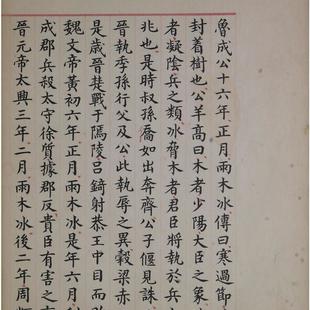 魯成公十六年正月雨木冰傳曰寒過節
封着樹也公羊高曰木者少陽大臣之象
者凝陰兵之類冰脅木者君臣將執於兵
兆也是時叔孫喬如出奔齊公子偃見誅
晉執季孫行父及公此執辱之異穀梁赤
是歲晉楚戰于隝陵呂錡射恭王中目而
魏文帝黃初六年正月雨木冰是年六月利
成郡兵殺太守徐質據郡反貴臣有害之
晉元帝太興三年二月雨木冰後二年周